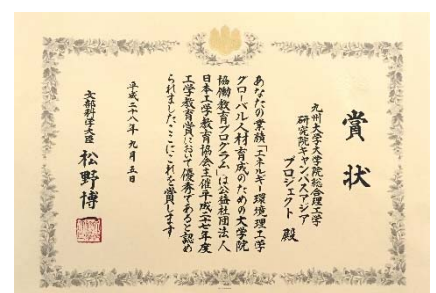 賞状
九州大学大学院総合理工学
研究院キャンパスアジア
プロジェクト 殿
あなたの業績「エネルギー環境理工学
グローバル人材育成のための大学院
協働教育プログラム」は公益社団法人
日本工学教育協会主催平成二十七年度
工学教育賞において優秀であると認め
られました、ここにこれを賞します
平成二十八年九月五日
文部科学大臣 松野博一